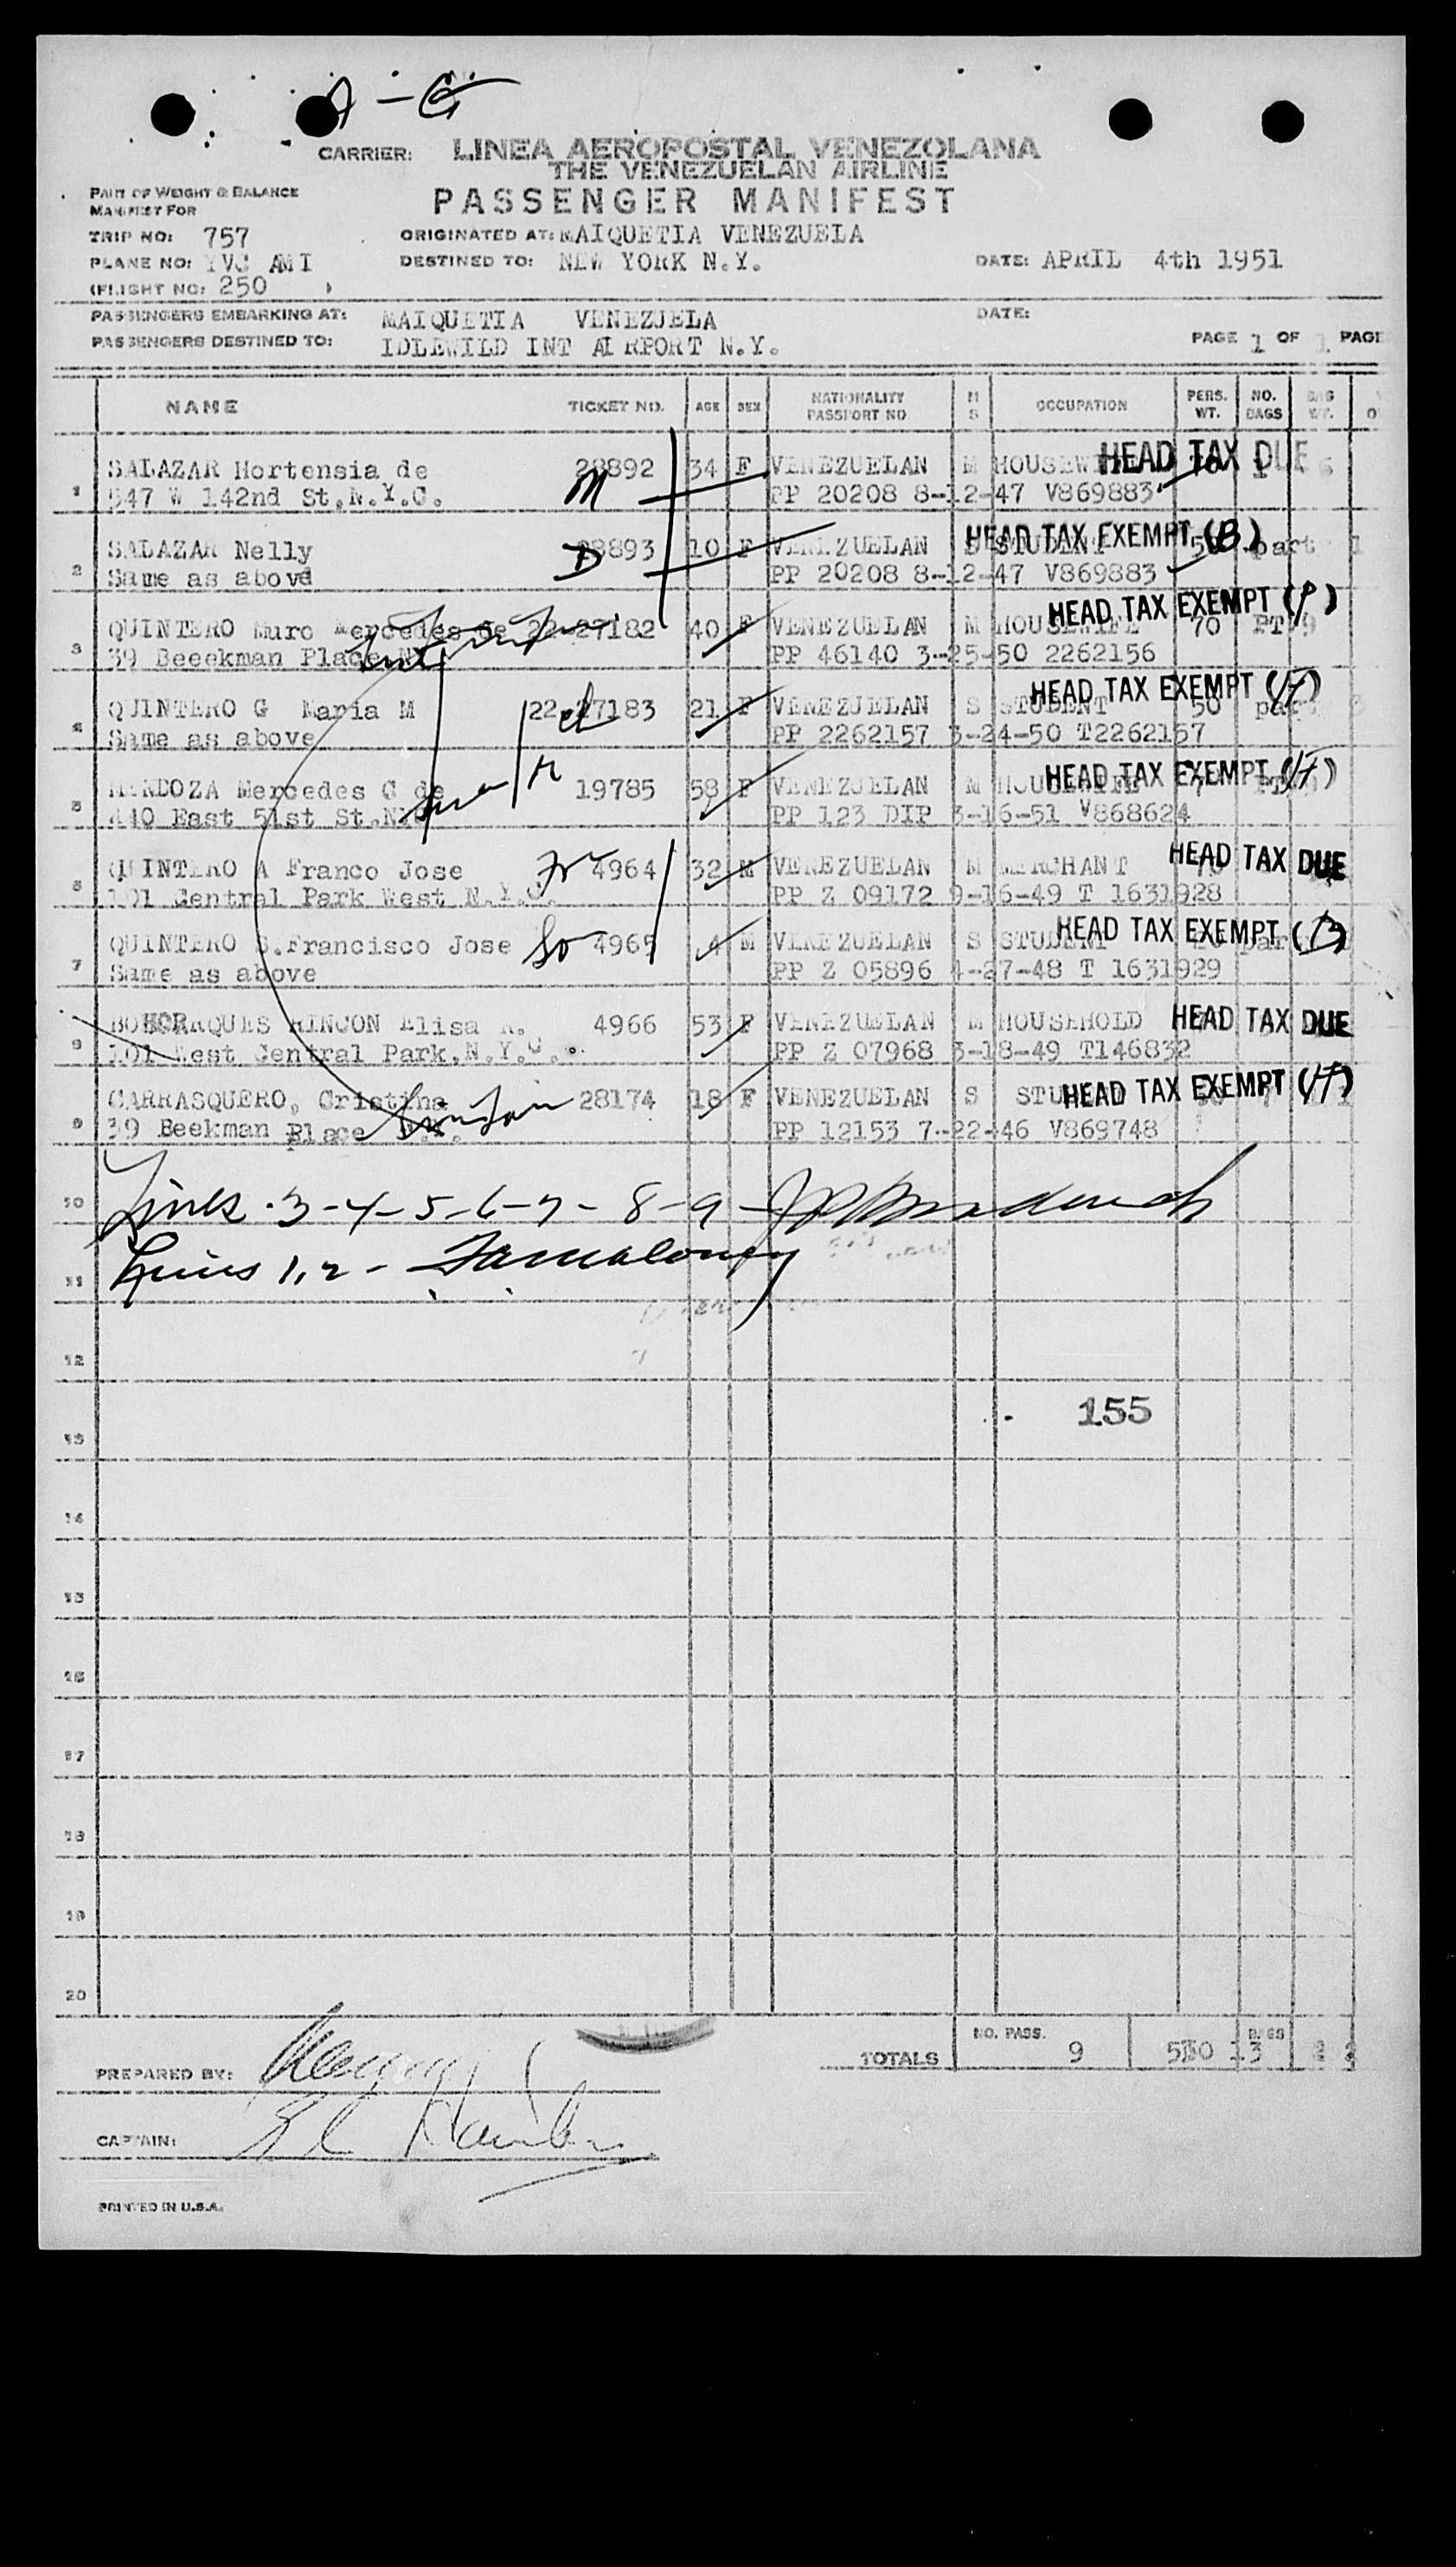 A - G
CARRIER: LINEA AEROPOSTAL VENEZOLANA
THE VENEZUELAN AIRLINE
PART OF WEIGHT & BALANCE
MANIFEST FOR
PASSENGER MANIFEST
TRIP NO: 757 ORIGINATED AT: MAIQUETIA VENEZUELA
PLANE NO: YVC AMI DESTINED TO: NEW YORK N.Y. DATE: APRIL 4th 1951
(FLIGHT NO: 250 )
PASSENGERS EMBARKING AT: MAIQUETIA VENEZUELA DATE:
PASSENGERS DESTINED TO: IDLEWILD INT AIRPORT N.Y. PAGE 1 OF 1 PAGE
NAME TICKET NO. AGE SEX NATIONALITY PASSPORT NO M S OCCUPATION PERS. WT. NO. BAGS BAG WT.
1 SALAZAR Hortensia de 28892 34 F VENEZUELAN M HOUSEWIFE HEAD TAX DUE
547 W 142nd St,N.Y.C. M PP 20208 8-12-47 V869883
2 SALAZAR Nelly 28893 10 F VENEZUELAN S STUDENT HEAD TAX EXEMPT (B) part
Same as above D PP 20208 8-12-47 V869883
3 QUINTERO Muro Mercedes de 22-27182 40 F VENEZUELAN M HOUSEWIFE 70 PT 9 HEAD TAX EXEMPT (P)
39 Beeekman Place N.Y. PP 46140 3-25-50 2262156
4 QUINTERO G Maria M 22-27183 21 F VENEZUELAN S STUDENT 50 part HEAD TAX EXEMPT (H)
Same as above PP 2262157 3-24-50 T2262157
5 MENDOZA Mercedes C de 19785 58 F VENEZUELAN M HOUSEWIFE HEAD TAX EXEMPT (H)
440 East 51st St.N.Y. PP 123 DIP 3-16-51 V868624
6 QUINTERO A Franco Jose 4964 32 M VENEZUELAN M MERCHANT HEAD TAX DUE
101 Central Park West N.Y.C. PP Z 09172 9-16-49 T 1631928
7 QUINTERO S.Francisco Jose So 4965 4 M VENEZUELAN S STUDENT HEAD TAX EXEMPT (B)
Same as above PP Z 05896 4-27-48 T 1631929
8 BOHORRQUES RINCON Elisa R. 4966 53 F VENEZUELAN M HOUSEHOLD HEAD TAX DUE
101 West Central Park,N.Y.C. PP Z 07968 3-18-49 T146832
9 CARRASQUERO, Cristina 28174 18 F VENEZUELAN S STUDENT HEAD TAX EXEMPT (H)
39 Beekman Place N.Y. PP 12153 7-22-46 V869748
10 Lines - 3-4-5-6-7-8-9 -
11 Lines 1,2 - Famaloney
12
13 155
14
15
16
17
18
19
20
TOTALS NO. PASS. 9 BAGS 13
PREPARED BY:
CAPTAIN:
PRINTED IN U.S.A.